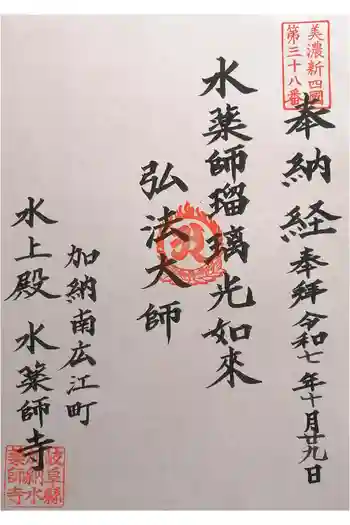 美濃新四國
第三十八番
奉納経
奉拜令和七年十月廿九日
水薬師瑠璃光如來
弘法大師
加納南広江町
水上殿水薬師寺
岐阜縣
加納水
薬師寺